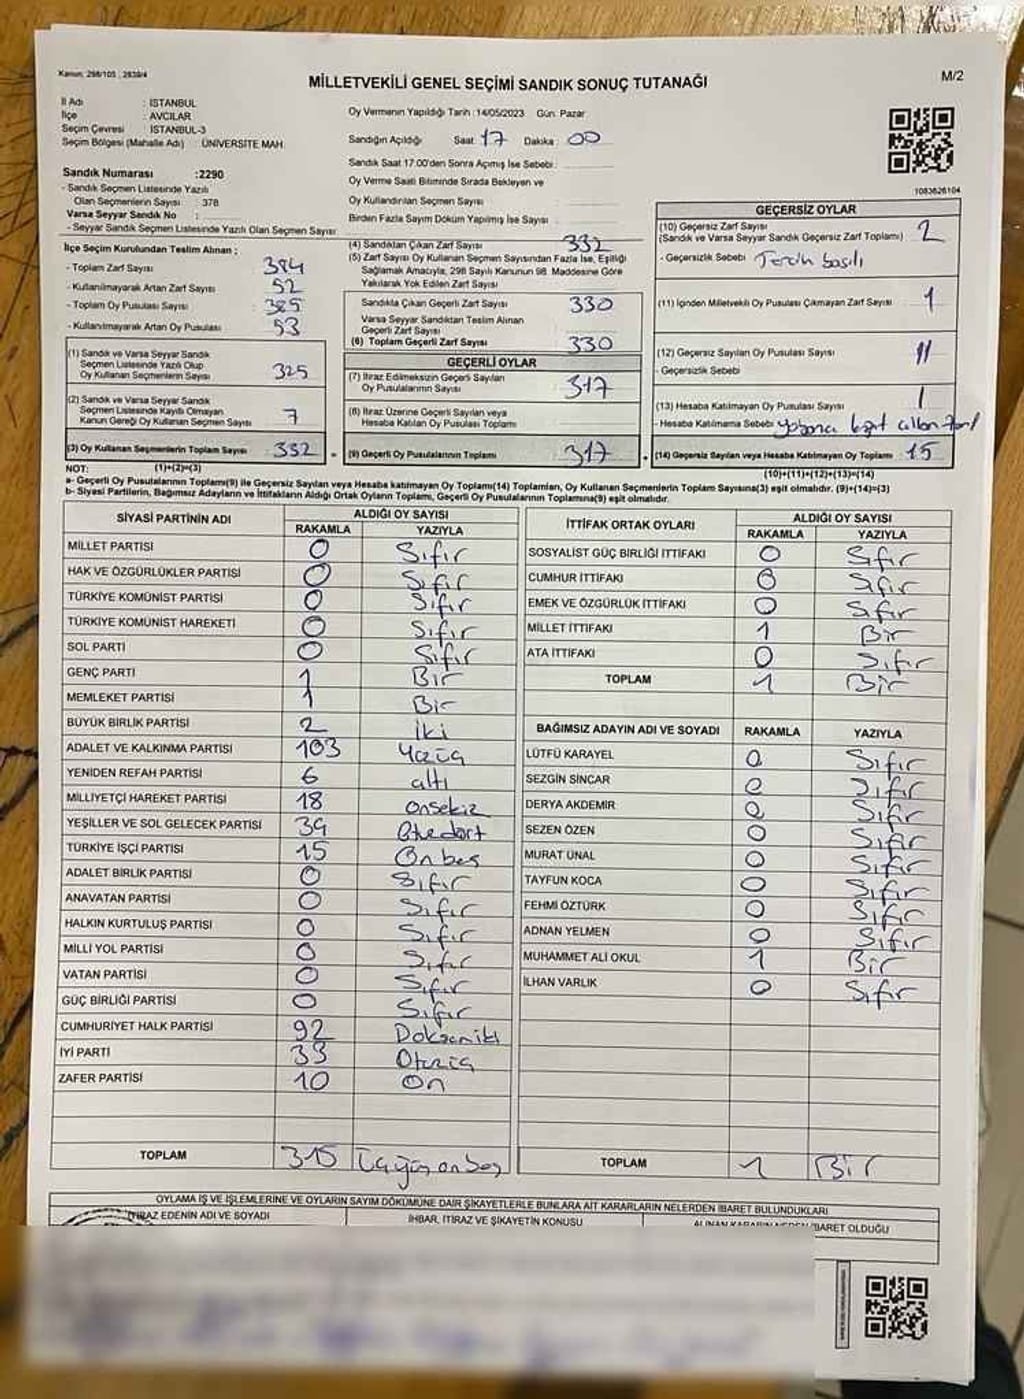 Kanun: 298/105 , 2839/4
MİLLETVEKİLİ GENEL SEÇİMİ SANDIK SONUÇ TUTANAĞI
M/2
İl Adı : İSTANBUL
İlçe : AVCILAR
Seçim Çevresi : İSTANBUL-3
Seçim Bölgesi (Mahalle Adı) : ÜNİVERSİTE MAH.
Oy Vermenin Yapıldığı Tarih : 14/05/2023 Gün: Pazar
Sandığın Açıldığı Saat: 17 Dakika : 00
Sandık Saat 17:00'den Sonra Açımış İse Sebebi :
Oy Verme Saati Bitiminde Sırada Bekleyen ve
Oy Kullandırılan Seçmen Sayısı :
Birden Fazla Sayım Döküm Yapılmış İse Sayısı :
1083626104
Sandık Numarası :2290
- Sandık Seçmen Listesinde Yazılı
Olan Seçmenlerin Sayısı : 378
Varsa Seyyar Sandık No :
- Seyyar Sandık Seçmen Listesinde Yazılı Olan Seçmen Sayısı:
İlçe Seçim Kurulundan Teslim Alınan ;
- Toplam Zarf Sayısı : 384
- Kullanılmayarak Artan Zarf Sayısı : 52
- Toplam Oy Pusulası Sayısı : 385
- Kullanılmayarak Artan Oy Pusulası : 53
(1) Sandık ve Varsa Seyyar Sandık
Seçmen Listesinde Yazılı Olup
Oy Kullanan Seçmenlerin Sayısı 325
(2) Sandık ve Varsa Seyyar Sandık
Seçmen Listesinde Kayıtlı Olmayan
Kanun Gereği Oy Kullanan Seçmen Sayısı 7
(3) Oy Kullanan Seçmenlerin Toplam Sayısı 332
(4) Sandıktan Çıkan Zarf Sayısı 332
(5) Zarf Sayısı Oy Kullanan Seçmen Sayısından Fazla İse, Eşitliği
Sağlamak Amacıyla, 298 Sayılı Kanunun 98. Maddesine Göre
Yakılarak Yok Edilen Zarf Sayısı
Sandıkla Çıkan Geçerli Zarf Sayısı 330
Varsa Seyyar Sandıktan Teslim Alınan
Geçerli Zarf Sayısı
(6) Toplam Geçerli Zarf Sayısı 330
GEÇERLİ OYLAR
(7) İtiraz Edilmeksizin Geçerli Sayılan
Oy Pusulalarının Sayısı 317
(8) İtiraz Üzerine Geçerli Sayılan veya
Hesaba Katılan Oy Pusulası Toplamı
(9) Geçerli Oy Pusulalarının Toplamı 317
GEÇERSİZ OYLAR
(10) Geçersiz Zarf Sayısı
(Sandık ve Varsa Seyyar Sandık Geçersiz Zarf Toplamı) 2
- Geçersizlik Sebebi Tercih basılı
(11) İçinden Milletvekili Oy Pusulası Çıkmayan Zarf Sayısı 1
(12) Geçersiz Sayılan Oy Pusulası Sayısı 11
- Geçersizlik Sebebi
(13) Hesaba Katılmayan Oy Pusulası Sayısı 1
- Hesaba Katılmama Sebebi
(14) Geçersiz Sayılan veya Hesaba Katılmayan Oy Toplamı 15
NOT: (1)+(2)=(3)
(10)+(11)+(12)+(13)=(14)
a- Geçerli Oy Pusulalarının Toplamı(9) ile Geçersiz veya Hesaba katılmayan Oy Toplamı(14) Toplamları, Oy Kullanan Seçmenlerin Toplam Sayısına(3) eşit olmalıdır. (9)+(14)=(3)
b- Siyasi Partilerin, Bağımsız Adayların ve İttifakların Aldığı Ortak Oyların Toplamı, Geçerli Oy Pusulalarının Toplamına(9) eşit olmalıdır.
SİYASİ PARTİNİN ADI ALDIĞI OY SAYISI
RAKAMLA YAZIYLA
MİLLET PARTİSİ 0 Sıfır
HAK VE ÖZGÜRLÜKLER PARTİSİ 0 Sıfır
TÜRKİYE KOMÜNİST PARTİSİ 0 Sıfır
TÜRKİYE KOMÜNİST HAREKETİ 0 Sıfır
SOL PARTİ 0 Sıfır
GENÇ PARTİ 1 Bir
MEMLEKET PARTİSİ 1 Bir
BÜYÜK BİRLİK PARTİSİ 2 iki
ADALET VE KALKINMA PARTİSİ 103 Yüzüç
YENİDEN REFAH PARTİSİ 6 altı
MİLLİYETÇİ HAREKET PARTİSİ 18 onsekiz
YEŞİLLER VE SOL GELECEK PARTİSİ 34 Otuzdört
TÜRKİYE İŞÇİ PARTİSİ 15 Onbeş
ADALET BİRLİK PARTİSİ 0 Sıfır
ANAVATAN PARTİSİ 0 Sıfır
HALKIN KURTULUŞ PARTİSİ 0 Sıfır
MİLLİ YOL PARTİSİ 0 Sıfır
VATAN PARTİSİ 0 Sıfır
GÜÇ BİRLİĞİ PARTİSİ 0 Sıfır
CUMHURİYET HALK PARTİSİ 92 Doksaniki
İYİ PARTİ 33 Otuzüç
ZAFER PARTİSİ 10 On
TOPLAM 315 Üçyüzonbeş
İTTİFAK ORTAK OYLARI ALDIĞI OY SAYISI
RAKAMLA YAZIYLA
SOSYALİST GÜÇ BİRLİĞİ İTTİFAKI 0 Sıfır
CUMHUR İTTİFAKI 0 Sıfır
EMEK VE ÖZGÜRLÜK İTTİFAKI 0 Sıfır
MİLLET İTTİFAKI 1 Bir
ATA İTTİFAKI 0 Sıfır
TOPLAM 1 Bir
BAĞIMSIZ ADAYIN ADI VE SOYADI RAKAMLA YAZIYLA
LÜTFÜ KARAYEL 0 Sıfır
SEZGİN SİNCAR 0 Sıfır
DERYA AKDEMİR 0 Sıfır
SEZEN ÖZEN 0 Sıfır
MURAT ÜNAL 0 Sıfır
TAYFUN KOCA 0 Sıfır
FEHMİ ÖZTÜRK 0 Sıfır
ADNAN YELMEN 0 Sıfır
MUHAMMET ALİ OKUL 1 Bir
İLHAN VARLIK 0 Sıfır
TOPLAM 1 Bir
OYLAMA İŞ VE İŞLEMLERİNE VE OYLARIN SAYIM DÖKÜMÜNE DAİR ŞİKAYETLERLE BUNLARA AİT KARARLARIN NELERDEN İBARET BULUNDUKLARI
İTİRAZ EDENİN ADI VE SOYADI İHBAR, İTİRAZ VE ŞİKAYETİN KONUSU ALINAN KARARIN NEDEN İBARET OLDUĞU